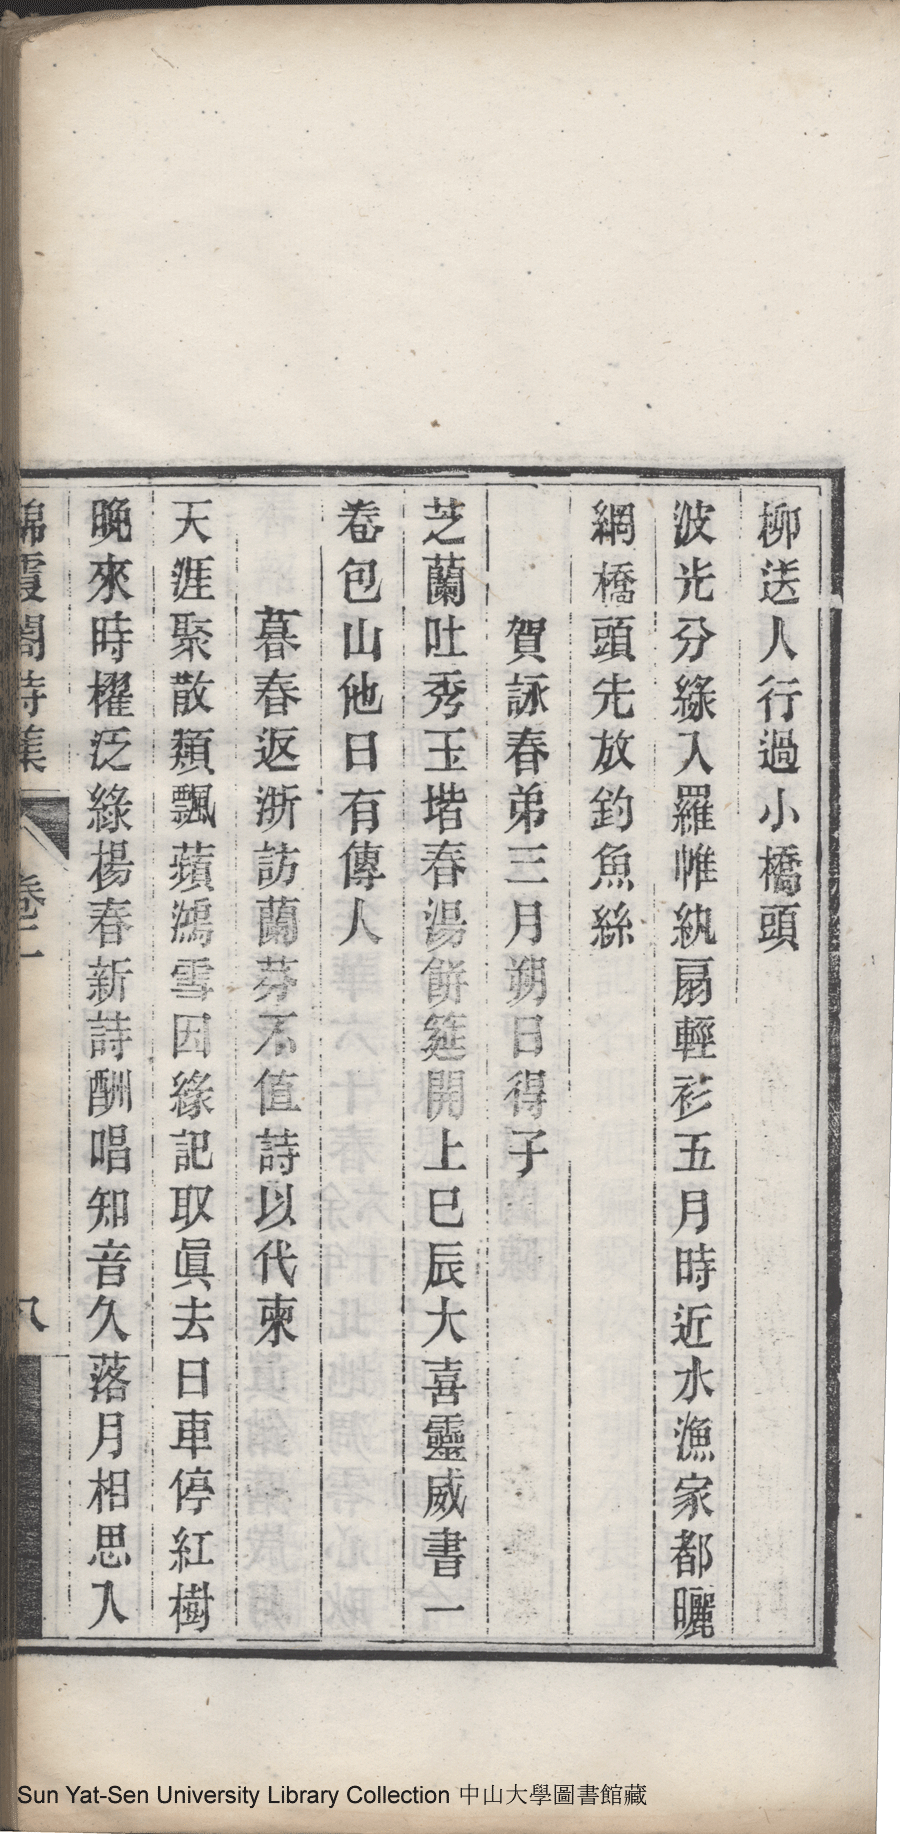 柳送人行過小橋頭
波光分綠入羅帷紈扇輕衫五月時近水漁家都曬
網橋頭先放釣魚絲
賀詠春弟三月朔日得子
芝蘭吐秀玉堦春湯餠筵開上巳辰大喜靈威書一
卷包山他日有傳人
暮春返浙訪蘭芬不值詩以代柬
天涯聚散類飄蘋鴻雪因緣記取眞去日車停紅樹
晚來時櫂泛綠楊春新詩酬唱知音久落月相思入
錦霞閣詩集 卷二 八
Sun Yat-Sen University Library Collection 中山大學圖書館藏